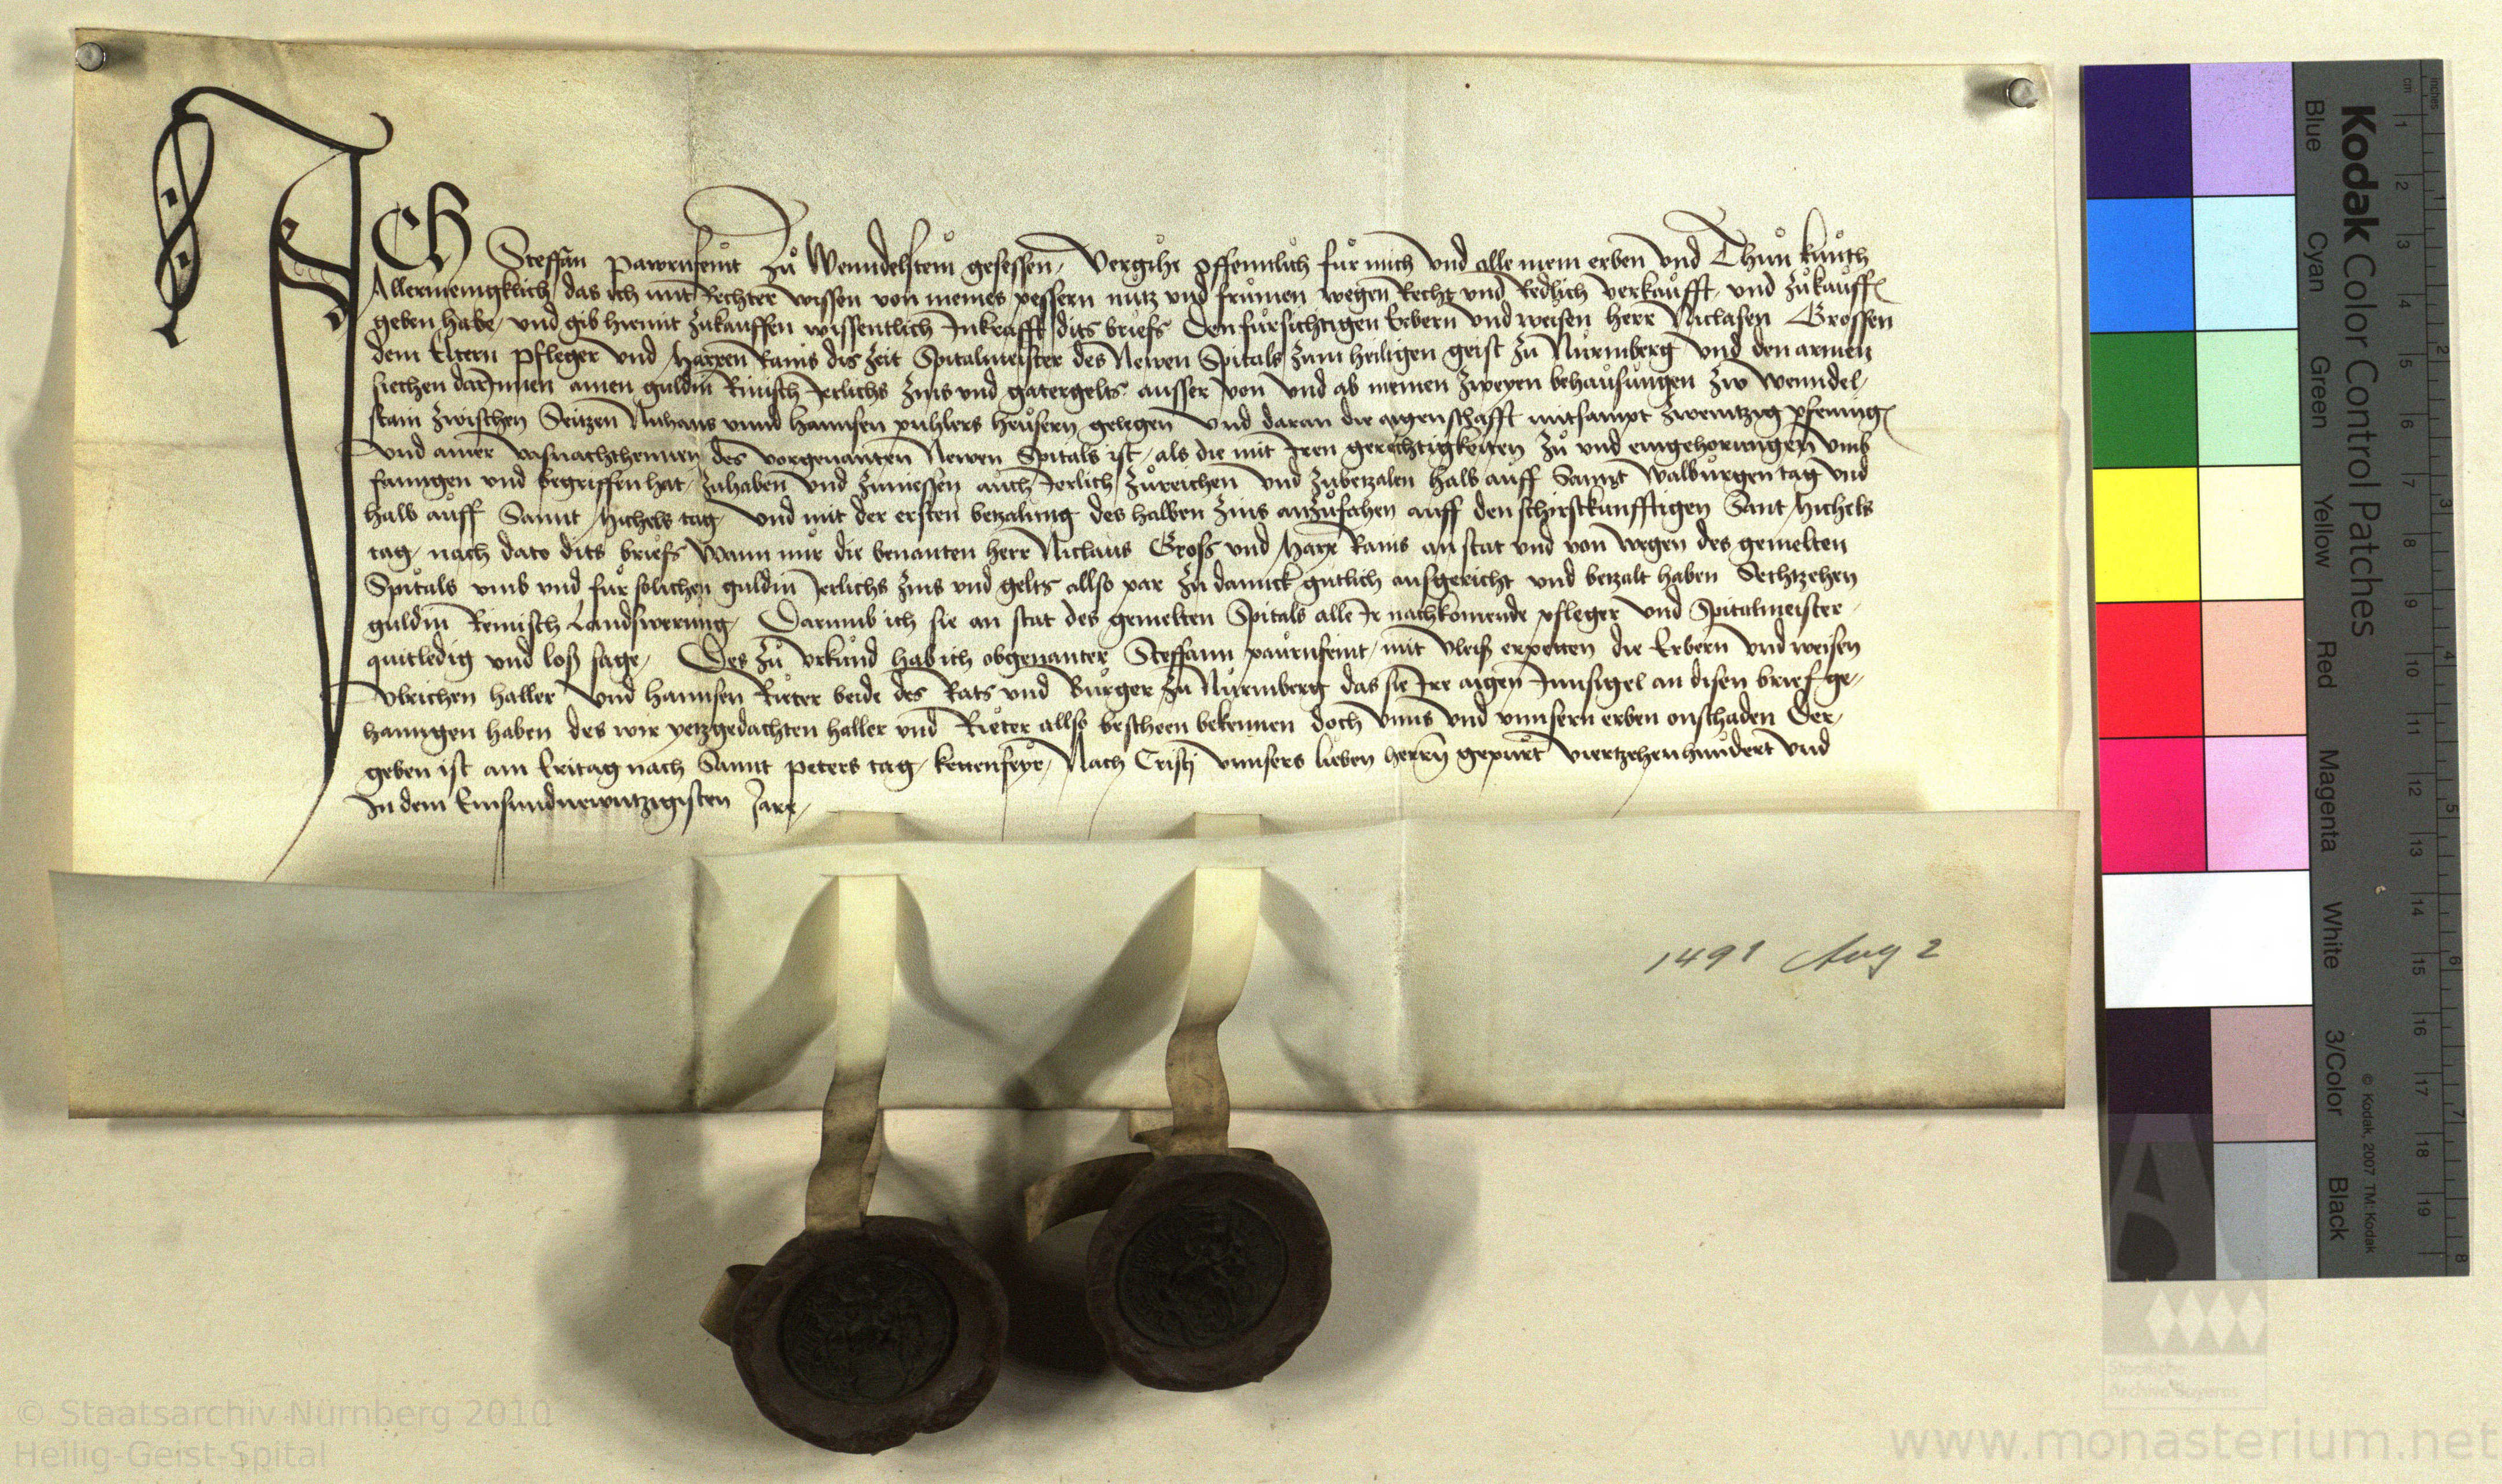 Ich Steffan pawrnfeint zů Wenndelstein gesessen, Vergihe offennlich für mich vnd alle mein erben vnd Thun kunth
Allermenigklich das ich mit Rechter wissen von meines pessern nutz vnd frůmen wegen Recht vnd Redlich verkaufft, vnd zůkauffen
geben habe, vnd gib hiemit zukauffen wissentlich Inkrafft dits briefs Den fürsichtigen Erbern vnd weisen herr Niclasen Grossen
dem Eltern pfleger vnd Marxen Ranis dis zeit Spitalmeister des Newen Spitals zum heiligen geist zu Nůrmberg vnd den armen
siechen darInnen ainen guldin Rinisch Jerlichs zins vnd gatergelts ausser von vnd ab meinen zweyen behausungen zw wenndel,
stain zwischen Seitzen Mihans vnnd hannsen puhlers heusern gelegen vnd daran die aigenschafft mitsampt zweintzig pfening
vnd ainer vasnachthennen des vorgenanten Newen Spitals ist, als die mit Iren gerechtigkeiten zů vnd eingehorungen vmb
fanngen vnd begriffen hat, zuhaben vnd zuniessen auch Jerlich zůreichen vnd zubetzalen halb auff Sannt Walburgen tag vnd
halb auff Sannt Michels tag, vnd mit der ersten betzalung des halben zins anzůfahen auff den schirstkunfftigen Sant Michels
tag, nach dato dits briefs Wann mir die benanten herr Niclaus Gross vnd Marx Ranis an stat vnd von wegen des gemelten
Spitals vmb vnd für solichen guldin Jerlichs zins vnd gelts allso par zu dannck gutlich ausgericht vnd betzalt haben Sechtzehen
guldin Reinisch Landswerung, Darumb ich sie an stat des gemelten Spitals alle Ir nachkomende pfleger vnd Spitalmeister
quitledig vnd loß sage, Des zů vrkund hab ich obgenanter Steffann paurnfeint, mit vleiß erpetten die Erbern vnd weisen
vlrichen haller vnd hannsen Rieter beide des Rats vnd Burger zu Nůrmberg das sie Ire aigen Innsigel an disen brief ge,
hanngen haben des wir yetzgedachten haller vnd Rieter allso bescheen bekennen doch vnns vnd vnnsern erben onschaden Der,
geben ist am Eritag nach Sannt peters tag, kettenfeyr, Nach Cristi vnnsers lieben herrn gepurt viertzehenhundert vnd
In dem Einsundnewntzigisten Jare,
1491 Aug 2
Kodak Color Control Patches
Blue Cyan Green Yellow Red Magenta White 3/Color Black
© Kodak, 2007 TM: Kodak
cm 1 2 3 4 5 6 7 8 9 10 11 12 13 14 15 16 17 18 19
inches 1 2 3 4 5 6 7 8
© Staatsarchiv Nürnberg 2010
Heilig-Geist-Spital
Staatliche
Archive Bayerns
www.monasterium.net